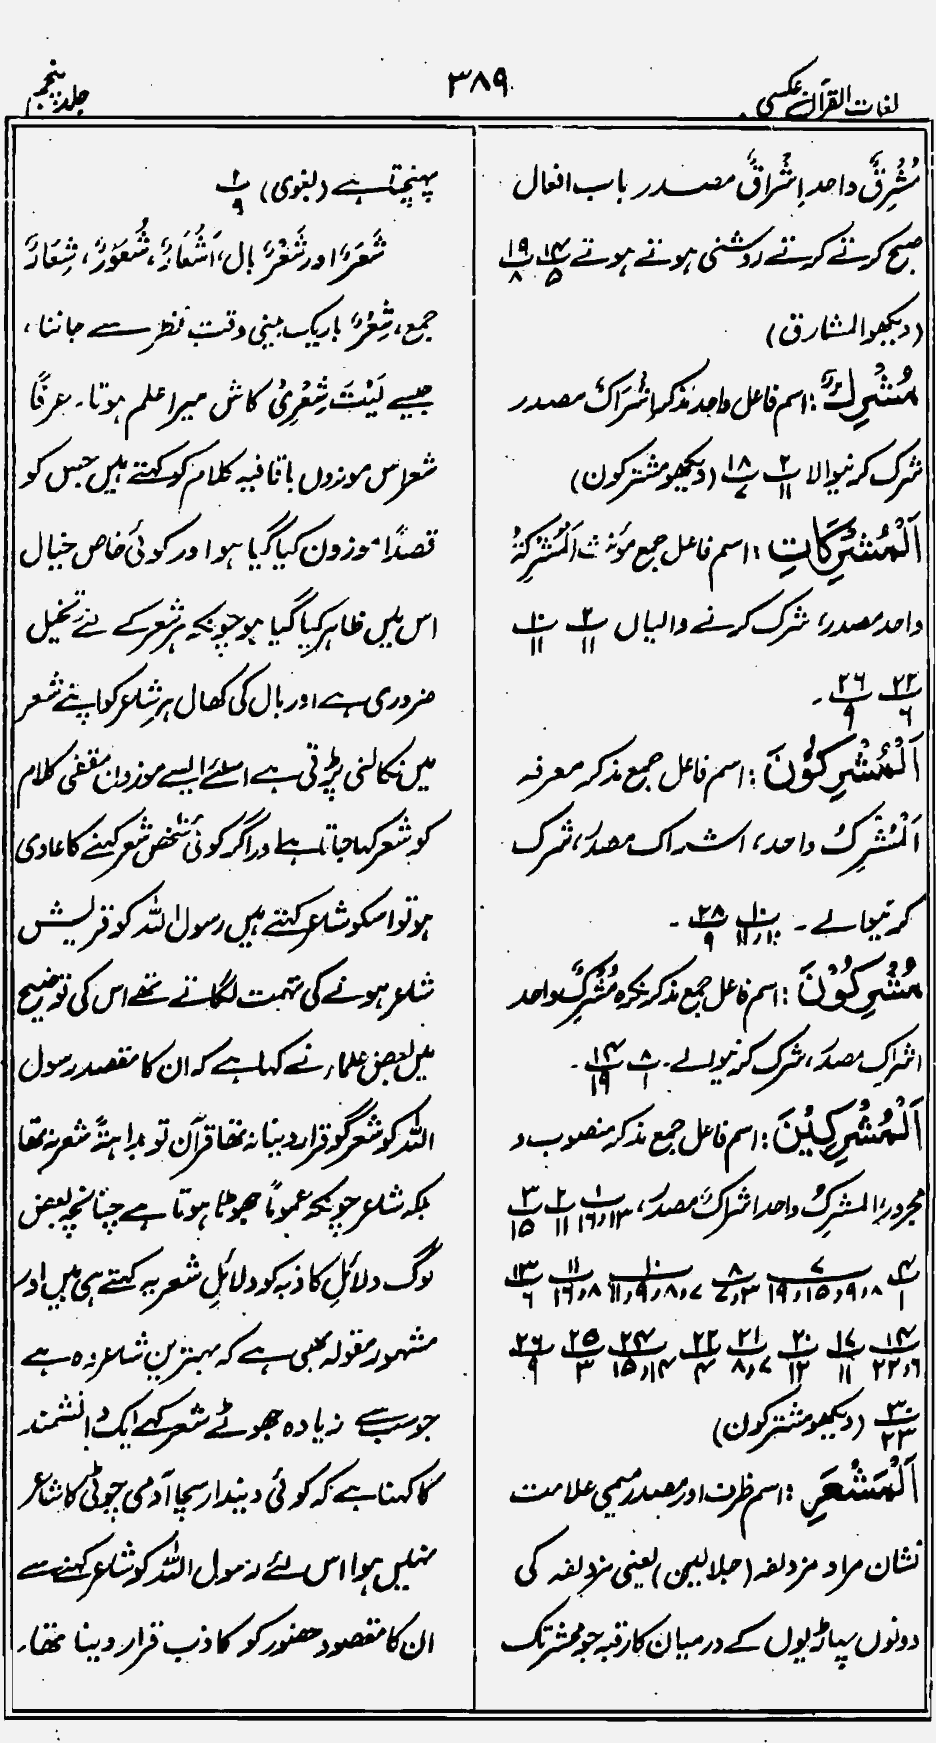 لغات القرآن عکسی
۳۸۹
جلد پنجم
مُشْرِقٌ واحد اِشْرَاقٌ مصدر باب افعال
صبح کرتے کرتے روشنی ہوتے ہوتے ۱۴/۵ ۱۹/۸
(دیکھو المشارق)
مُشْرِكٌ: اسم فاعل واحد مذکر اِشْرَاكٌ مصدر
شرک کرنیوالا ۲/۱۱ ۱۸/۷ (دیکھو مشترکون)
اَلْمُشْرِكَاتِ: اسم فاعل جمع مؤنث اَلْمُشْرِكَةُ
واحد مصدر، شرک کرنے والیاں ۲/۱۱ ۱۰/۱۱
۲۲/۶ ۲۶/۹ ۔
اَلْمُشْرِكُوْنَ: اسم فاعل جمع مذکر معرفہ
اَلْمُشْرِكُ واحد، اشراک مصدر، شرک
کرنیوالے ۔ ۱۰/۱۱،۱۰ ۲۸/۹ ۔
مُشْرِكُوْنَ: اسم فاعل جمع مذکر نکرہ مُشْرِكٌ واحد
اشراک مصدر، شرک کرنیوالے ۔ ۸/۱ ۱۴/۱۹ ۔
اَلْمُشْرِكِيْنَ: اسم فاعل جمع مذکر منصوب و
مجرور المشرِكُ واحد اشراکٌ مصدر، ۱/۱۶،۱۳ ۲/۱۱ ۳/۱۵
۴/۱ ۷/۱۹،۱۵،۹،۸ ۸/۷،۳ ۱۰/۱۱،۹،۸،۷ ۱۱/۱۶،۸ ۱۳/۶
۱۴/۲۲،۶ ۱۷/۱۱ ۲۰/۱۲ ۲۱/۸،۷ ۲۲/۴ ۲۴/۱۵،۱۴ ۲۵/۳ ۲۶/۹
۳۰/۲۳ (دیکھو مشترکون)
اَلْمَشْعَرِ: اسم ظرف اور مصدر میمی علامت
نشان مراد مزدلفہ (جلالیین) یعنی مزدلفہ کی
دونوں پہاڑیوں کے درمیان کا رقبہ جو محشر تک
پہنچتا ہے (بغوی) ۲/۹
شَعَرٌ اور شَعْرٌ بال، اَشْعَارٌ، شُعُوْرٌ، شِعَارٌ
جمع، شِعْرٌ باریک بینی دقت نظر سے جاننا،
جیسے لَیْتَ شِعْرِیْ کاش میرا علم ہوتا۔ عرفًا
شعر اس موزوں با قافیہ کلام کو کہتے ہیں جس کو
قصدًا موزون کیا گیا ہو اور کوئی خاص خیال
اس میں ظاہر کیا گیا ہو چونکہ ہر شعر کے لئے تخیل
ضروری ہے اور بال کی کھال ہر شاعر کو اپنے شعر
میں نکالنی پڑتی ہے اسلئے ایسے موزون مقفی کلام
کو شعر کہا جاتا ہے اور اگر کوئی شخص شعر کہنے کا عادی
ہو تو اسکو شاعر کہتے ہیں رسول اللہ کو قریش
شاعر ہونے کی تہمت لگاتے تھے اس کی توضیح
میں بعض علماء نے کہا ہے کہ ان کا مقصد رسول
اللہ کو شعر گو قرار دینا نہ تھا قرآن تو بداہۃً شعر نہ تھا
بلکہ شاعر چونکہ عمومًا جھوٹا ہوتا ہے چنانچہ بعض
لوگ دلائل کاذبہ کو دلائل شعریہ کہتے ہی ہیں اور
مشہور مقولہ بھی ہے کہ بہترین شاعر وہ ہے
جو سب سے زیادہ جھوٹے شعر کہے ایک دانشمند
کا کہنا ہے کہ کوئی دیندار سچا آدمی چوٹی کا شاعر
نہیں ہوا اس لئے رسول اللہ کو شاعر کہنے سے
ان کا مقصود حضور کو کاذب قرار دینا تھا۔